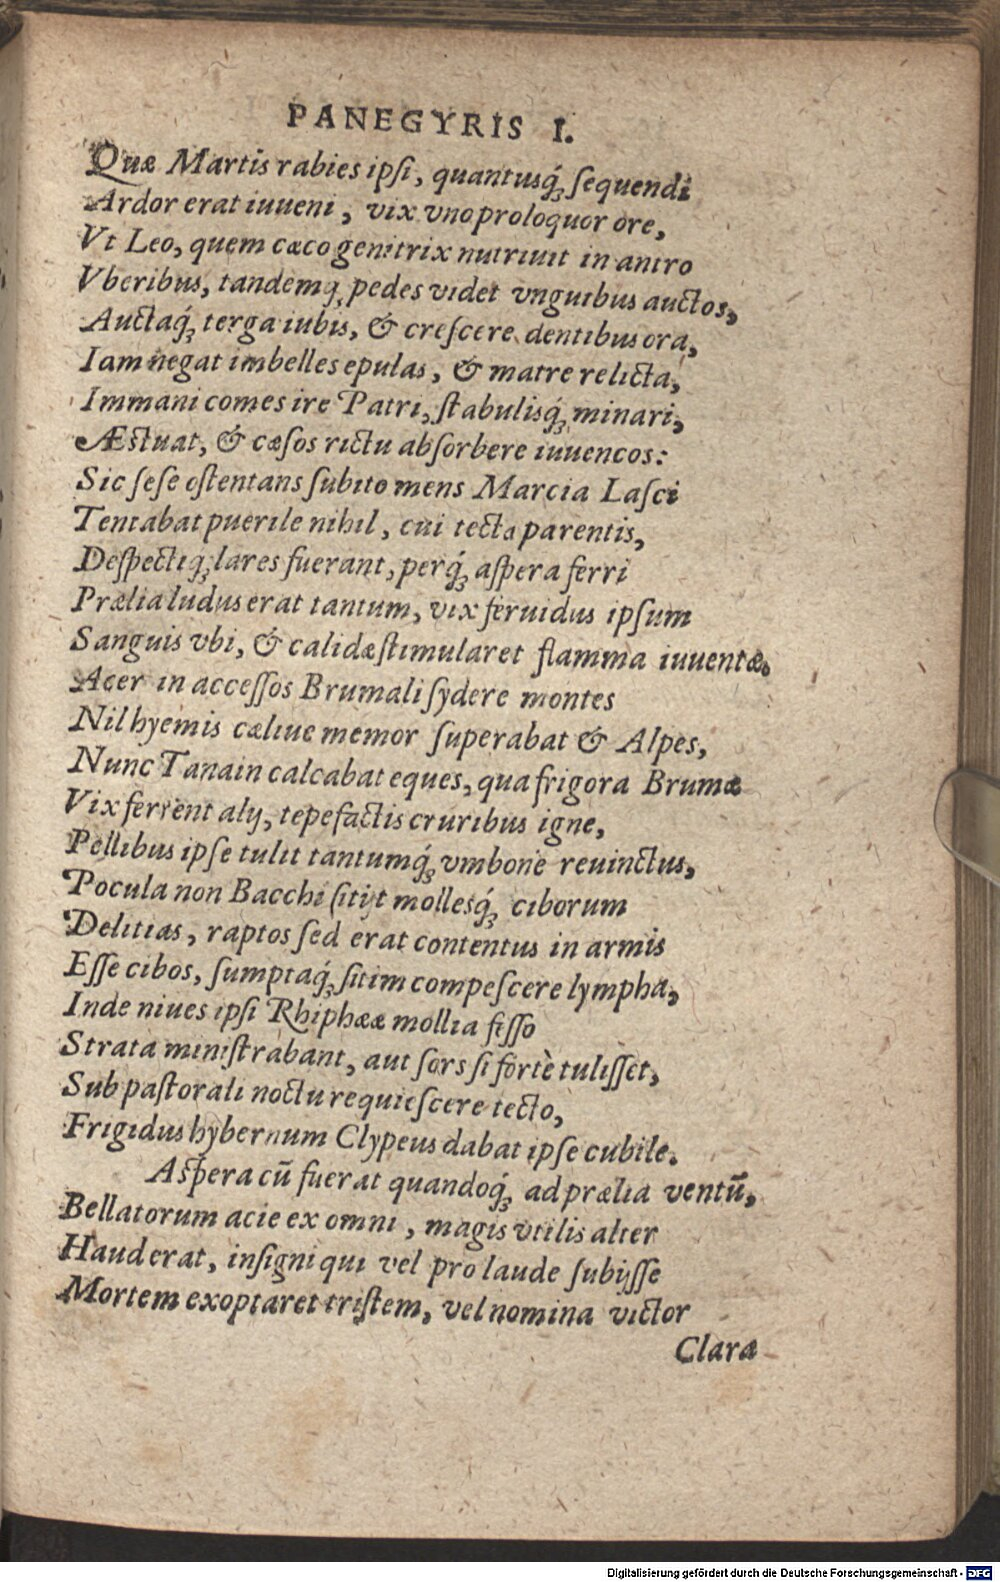 PANEGYRIS I.
Quæ Martis rabies ipsi, quantusq́; sequendi
Ardor erat iuueni, vix vno proloquor ore,
Vt Leo, quem cæco genitrix nutriuit in antro
Vberibus, tandemq; pedes videt vnguibus auctos,
Auctaq́; terga iubis, & crescere dentibus ora,
Iam negat imbelles epulas, & matre relicta,
Immani comes ire Patri, stabulisq́; minari,
Æstuat, & cæsos rictu absorbere iuuencos:
Sic sese ostentans subito mens Marcia Lasci
Tentabat puerile nihil, cui tecta parentis,
Despectiq; lares fuerant, perq́; aspera ferri
Prælia ludus erat tantum, vix feruidus ipsum
Sanguis vbi, & calidæ stimularet flamma iuuentæ.
Acer in accessos Brumali sydere montes
Nil hyemis cæliue memor superabat & Alpes,
Nunc Tanain calcabat eques, qua frigora Brumæ
Vix ferrent alij, tepefactis cruribus igne,
Pellibus ipse tulit tantumq́; vmbone reuinctus,
Pocula non Bacchi sitijt mollesq́; ciborum
Delitias, raptos sed erat contentus in armis
Esse cibos, sumptaq́; sitim compescere lympha,
Inde niues ipsi Rhiphææ mollia fesso
Strata ministrabant, aut sors si fortè tulisset,
Sub pastorali noctu requiescere tecto,
Frigidus hybernum Clypeus dabat ipse cubile.
Aspera cũ fuerat quandoq́; ad prælia ventũ,
Bellatorum acie ex omni, magis vtilis alter
Haud erat, insigni qui vel pro laude subijsse
Mortem exoptaret tristem, vel nomina victor
Claræ
Digitalisierung gefördert durch die Deutsche Forschungsgemeinschaft - DFG